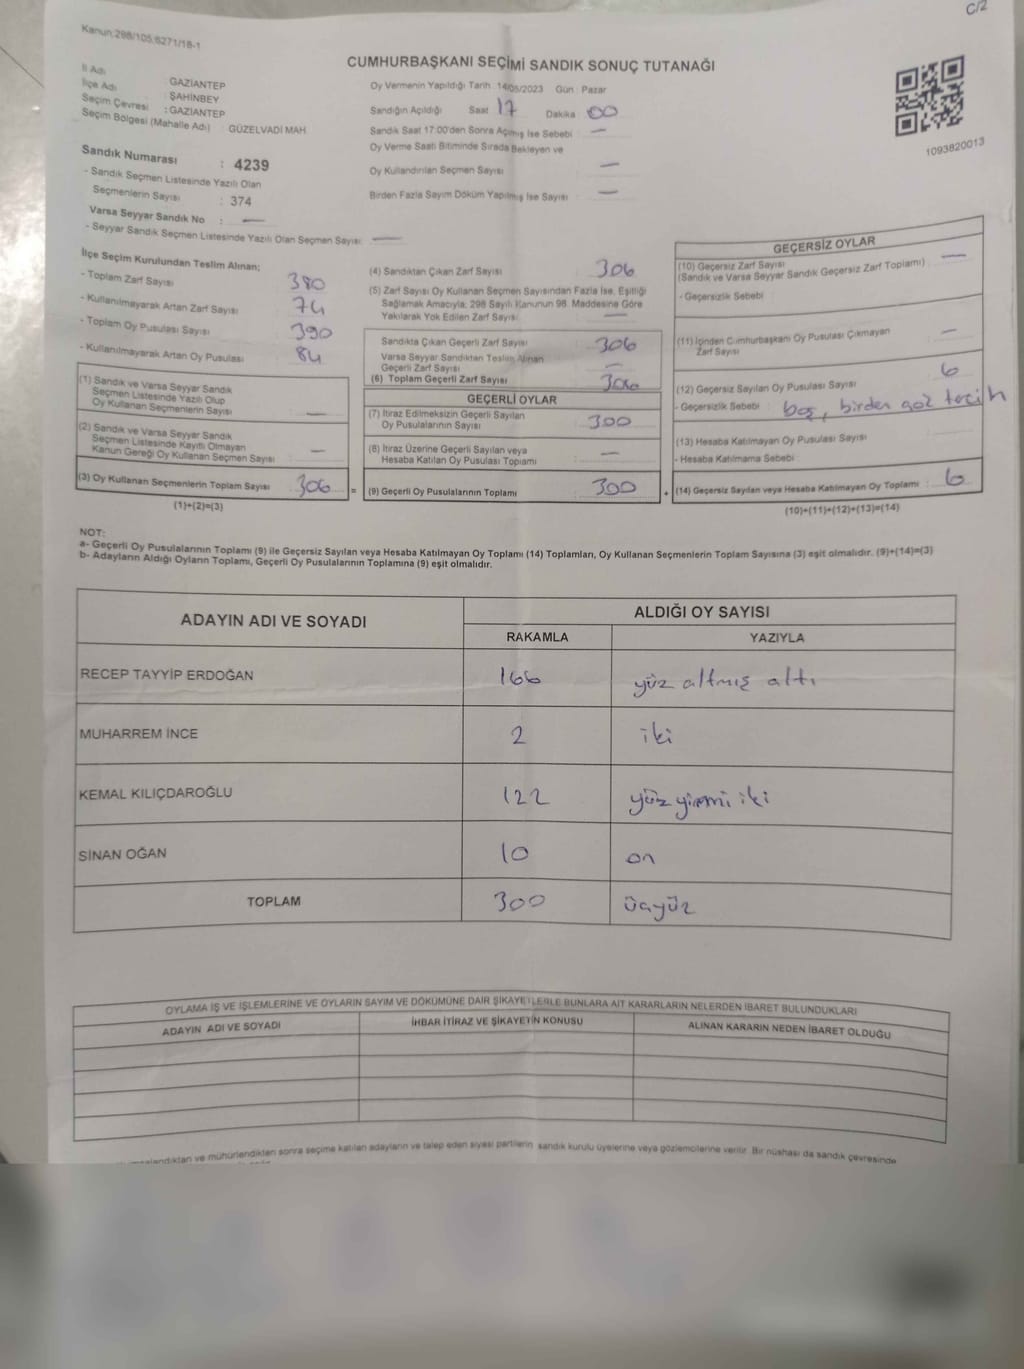 C/2
Kanun:298/105,6271/18-1
CUMHURBAŞKANI SEÇİMİ SANDIK SONUÇ TUTANAĞI
İl Adı : GAZİANTEP
İlçe Adı : ŞAHİNBEY
Seçim Çevresi : GAZİANTEP
Seçim Bölgesi (Mahalle Adı) : GÜZELVADİ MAH.
Oy Vermenin Yapıldığı Tarih : 14/05/2023 Gün : Pazar
Sandığın Açıldığı Saat 17 Dakika 00
Sandık Saat 17:00'den Sonra Açılmış İse Sebebi : —
Oy Verme Saati Bitiminde Sırada Bekleyen ve
Oy Kullandırılan Seçmen Sayısı —
Birden Fazla Sayım Döküm Yapılmış İse Sayısı : —
1093820013
Sandık Numarası : 4239
- Sandık Seçmen Listesinde Yazılı Olan
Seçmenlerin Sayısı : 374
Varsa Seyyar Sandık No : —
- Seyyar Sandık Seçmen Listesinde Yazılı Olan Seçmen Sayısı: —
İlçe Seçim Kurulundan Teslim Alınan;
- Toplam Zarf Sayısı 380
- Kullanılmayarak Artan Zarf Sayısı 74
- Toplam Oy Pusulası Sayısı 390
- Kullanılmayarak Artan Oy Pusulası 84
(1) Sandık ve Varsa Seyyar Sandık
Seçmen Listesinde Yazılı Olup
Oy Kullanan Seçmenlerin Sayısı —
(2) Sandık ve Varsa Seyyar Sandık
Seçmen Listesinde Kayıtlı Olmayan
Kanun Gereği Oy Kullanan Seçmen Sayısı —
(3) Oy Kullanan Seçmenlerin Toplam Sayısı 306 =
(1)+(2)=(3)
(4) Sandıktan Çıkan Zarf Sayısı : 306
(5) Zarf Sayısı Oy Kullanan Seçmen Sayısından Fazla İse, Eşitliği
Sağlamak Amacıyla, 298 Sayılı Kanunun 98. Maddesine Göre
Yakılarak Yok Edilen Zarf Sayısı —
Sandıkta Çıkan Geçerli Zarf Sayısı : 306
Varsa Seyyar Sandıktan Teslim Alınan
Geçerli Zarf Sayısı —
(6) Toplam Geçerli Zarf Sayısı 306
GEÇERLİ OYLAR
(7) İtiraz Edilmeksizin Geçerli Sayılan
Oy Pusulalarının Sayısı : 300
(8) İtiraz Üzerine Geçerli Sayılan veya
Hesaba Katılan Oy Pusulası Toplamı : —
(9) Geçerli Oy Pusulalarının Toplamı : 300 +
GEÇERSİZ OYLAR
(10) Geçersiz Zarf Sayısı
(Sandık ve Varsa Seyyar Sandık Geçersiz Zarf Toplamı) : —
- Geçersizlik Sebebi :
(11) İçinden Cumhurbaşkanı Oy Pusulası Çıkmayan
Zarf Sayısı —
(12) Geçersiz Sayılan Oy Pusulası Sayısı : 6
- Geçersizlik Sebebi : boş, birden
(13) Hesaba Katılmayan Oy Pusulası Sayısı :
- Hesaba Katılmama Sebebi :
(14) Geçersiz Sayılan veya Hesaba Katılmayan Oy Toplamı : 6
(10)+(11)+(12)+(13)=(14)
NOT:
a- Geçerli Oy Pusulalarının Toplamı (9) ile Geçersiz Sayılan veya Hesaba Katılmayan Oy Toplamı (14) Toplamları, Oy Kullanan Seçmenlerin Toplam Sayısına (3) eşit olmalıdır. (9)+(14)=(3)
b- Adayların Aldığı Oyların Toplamı, Geçerli Oy Pusulalarının Toplamına (9) eşit olmalıdır.
ADAYIN ADI VE SOYADI
ALDIĞI OY SAYISI
RAKAMLA YAZIYLA
RECEP TAYYİP ERDOĞAN 166 yüz altmış altı
MUHARREM İNCE 2 iki
KEMAL KILIÇDAROĞLU 122 yüz yirmi iki
SİNAN OĞAN 10 on
TOPLAM 300 üçyüz
OYLAMA İŞ VE İŞLEMLERİNE VE OYLARIN SAYIM VE DÖKÜMÜNE DAİR ŞİKAYETLERLE BUNLARA AİT KARARLARIN NELERDEN İBARET BULUNDUKLARI
ADAYIN ADI VE SOYADI İHBAR İTİRAZ VE ŞİKAYETİN KONUSU ALINAN KARARIN NEDEN İBARET OLDUĞU
ve mühürlendikten sonra seçime katılan adayların ve talep eden siyasi partilerin sandık kurulu üyelerine veya gözlemcilerine verilir. Bir nüshası da sandık çevresinde